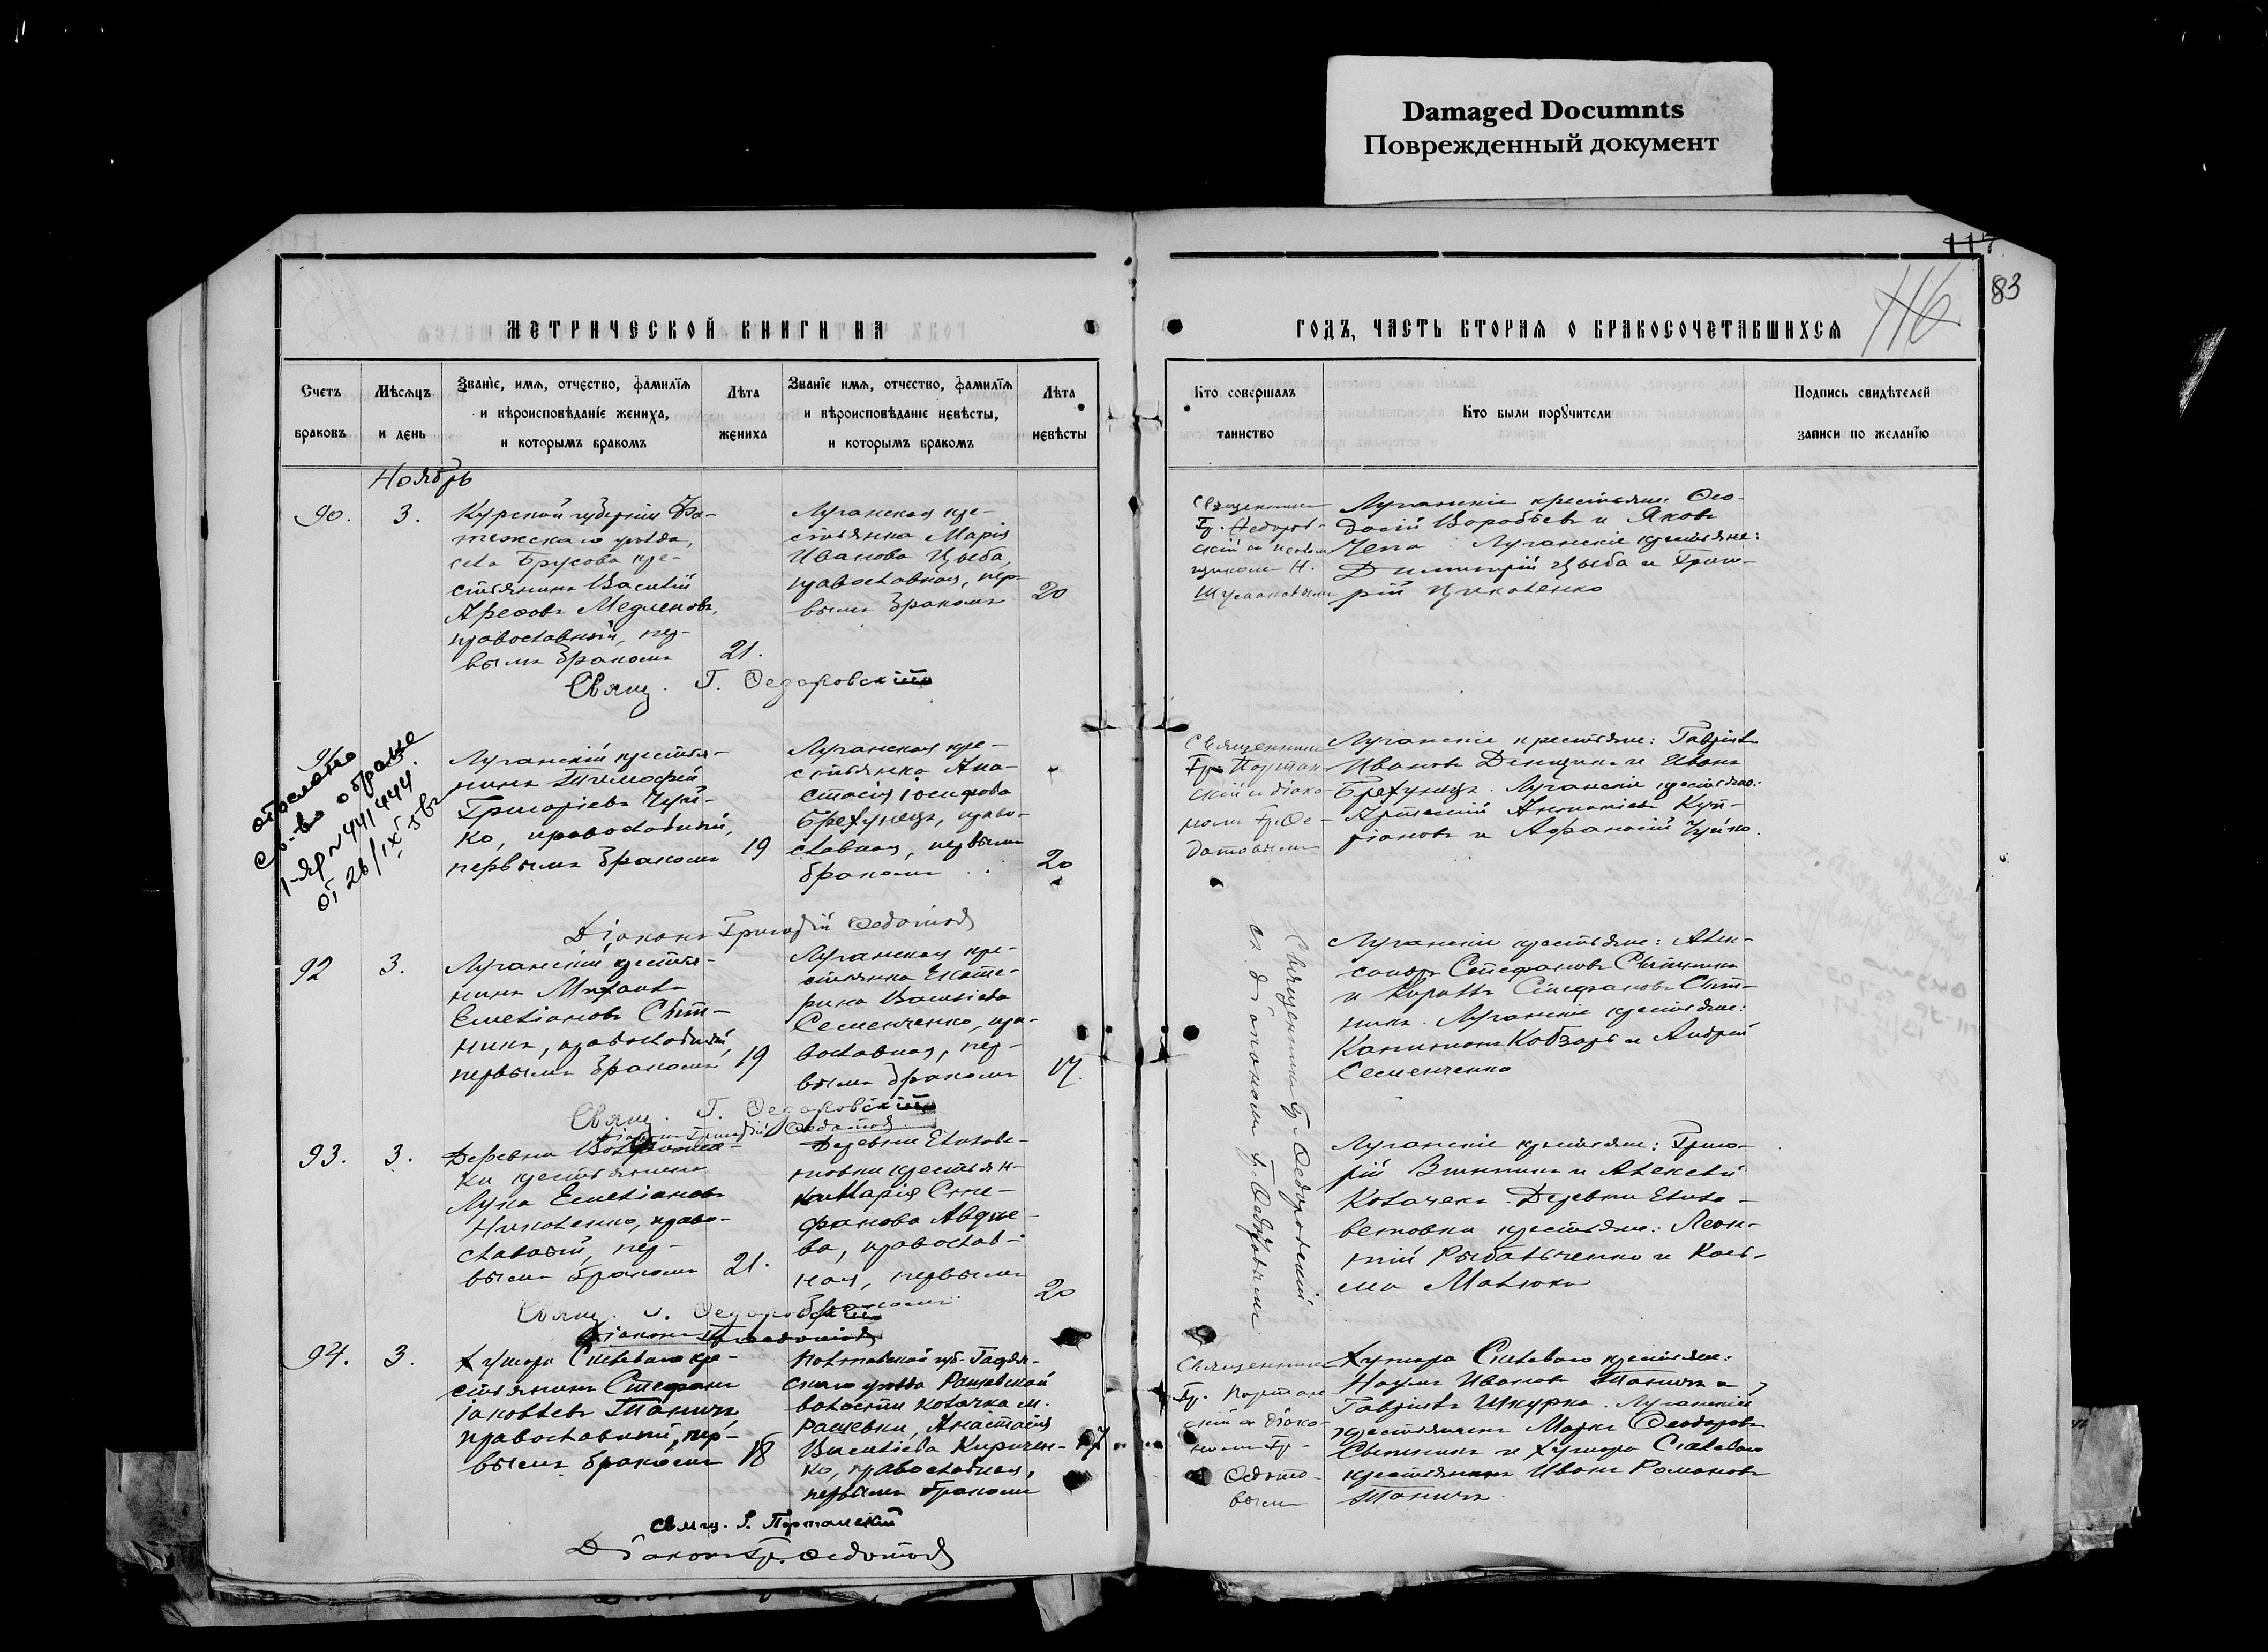 Damaged Documnts
Поврежденный документ
117
116
83
МЕТРИЧЕСКОЙ КНИГИ НА
ГОДЪ, ЧАСТЬ ВТОРАЯ О БРАКОСОЧЕТАВШИХСЯ
Счетъ браковъ
Мѣсяцъ и день
Званіе, имя, отчество, фамилія и вѣроисповѣданіе жениха, и которымъ бракомъ
Лѣта жениха
Званіе имя, отчество, фамилія и вѣроисповѣданіе невѣсты, и которымъ бракомъ
Лѣта невѣсты
Кто совершалъ таинство
Кто были поручители
Подпись свидѣтелей записи по желанію
Ноябрь
90.
3.
Курской губерніи Фа-
тежскаго уѣзда,
села Брусова кре-
стьянинъ Василій
православный, пер-
вымъ бракомъ
21.
Луганская кре-
стьянка Марія
Иванова Цыба,
православная, пер-
вымъ бракомъ
20
Священникъ
Гр. Федоров-
скій и
Луганскіе крестьяне: Ѳео-
досій Воробьевъ и Яковъ
Чепа. Луганскіе крестьяне:
Димитрій Цыба и Григо-
рій
Свящ. Г. Ѳедоровскій
91.
отослано
с-во о браке
1-ЯР № 441444
от 26/IX
Луганскій крестья-
нинъ Тимофей
Григорьевъ Чуй-
ко, православный,
первымъ бракомъ
19
Луганская кре-
стьянка Ана-
стасія Іосифова
Брехунецъ, право-
славная, первымъ
бракомъ
20
Священникъ
Гр. Портан-
скій и діако-
номъ Гр. Ѳе-
дотовымъ
Луганскіе крестьяне: Гавріилъ
Ивановъ и Иванъ
Брехунецъ. Луганскіе крестьяне:
Артемій
и Афанасій Чуйко.
Діаконъ Григорій Ѳедотовъ
92
3.
Луганскій крестья-
нинъ Михаилъ
Емеліановъ Сыт-
никъ, православный,
первымъ бракомъ
19
Луганская кре-
стьянка Екате-
рина Васильева
Семенченко, пра-
вославная, пер-
вымъ бракомъ
17.
Священникъ Г. Ѳедоровскій
съ діакономъ Г. Ѳедотовымъ
Луганскіе крестьяне: Алек-
сандръ Стефановъ Сытникъ
и Кириллъ Стефановъ Сыт-
никъ. Луганскіе крестьяне:
Капитонъ Кобзарь и Андрей
Семенченко
Свящ. Г. Ѳедоровскій
Діаконъ Григорій Ѳедотовъ
93.
3.
Деревни
ки крестьянинъ
Лука Емеліановъ
Николенко, право-
славный, пер-
вымъ бракомъ
21.
Деревни Елизаве-
товки крестьян-
ка Марія Сте-
фанова Авдѣе-
ва, православ-
ная, первымъ
бракомъ
20
Луганскіе крестьяне: Григо-
рій Винникъ и Алексѣй
Козачекъ. Деревни Елиза-
ветовки крестьяне: Леон-
тій Рыбальченко и Козь-
ма Матюхъ
Свящ. Г. Ѳедоровскій
Діаконъ Гр. Ѳедотовъ
94.
3.
Хутора кре-
стьянинъ Стефанъ
Іаковлевъ Таничъ
православный, пер-
вымъ бракомъ
18
Полтавской губ. Гадяч-
скаго уѣзда Рашевской
волости козачка м.
Рашевки, Анастасія
Васильева Киричен-
ко, православная,
первымъ бракомъ
17
Священникъ
Гр. Портан-
скій и діако-
номъ Гр.
Ѳедото-
вымъ
Хутора крестьяне:
Наумъ Ивановъ Таничъ и
Гавріилъ Шкурка. Луганскій
крестьянинъ Марко Ѳеодоровъ
Сытникъ и хутора
крестьянинъ Иванъ Романовъ
Таничъ.
Свящ. Г. Портанскій
Діаконъ Гр. Ѳедотовъ